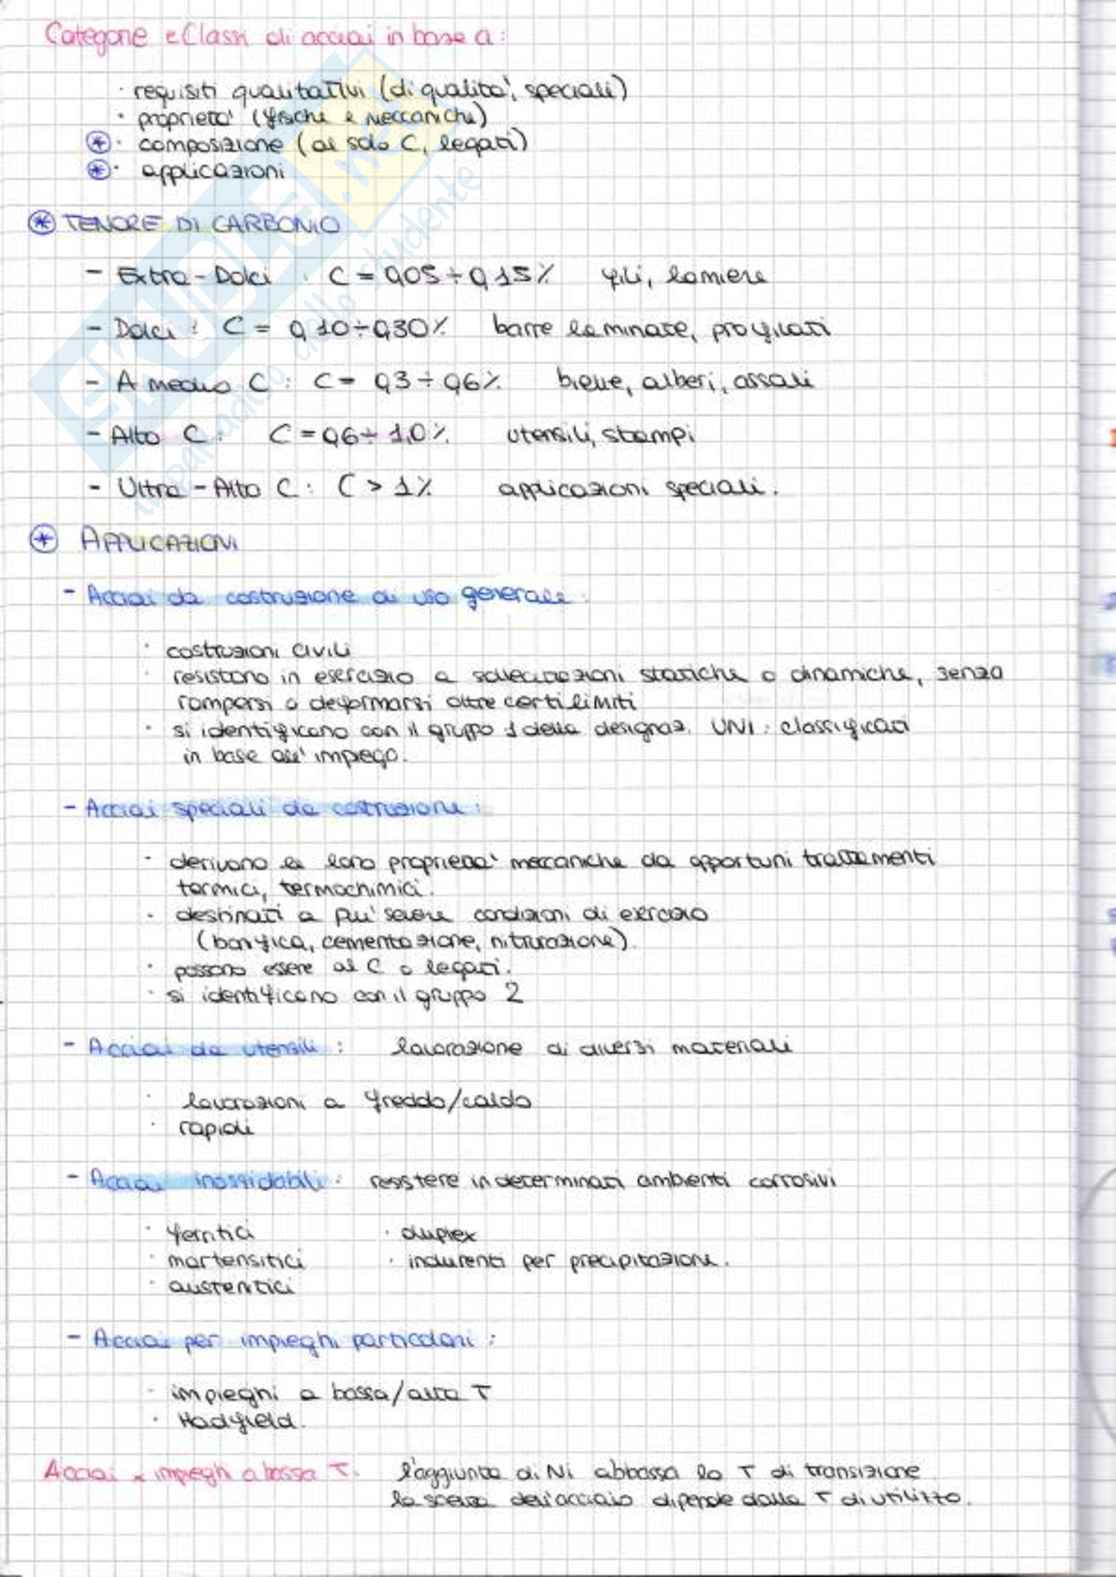 Categorie e Classi di acciai in base a:
· requisiti qualitativi (di qualita', speciali)
· proprieta' (fisiche e meccaniche)
* · composizione (al solo C, legati)
* · applicazioni
* TENORE DI CARBONIO
- Extra-Dolci : C = 0,05 ÷ 0,15% fili, lamiere
- Dolci : C = 0,10 ÷ 0,30% barre laminate, profilati
- A medio C : C = 0,3 ÷ 0,6% bielle, alberi, assali
- Alto C : C = 0,6 ÷ 1,0% utensili, stampi
- Ultra-Alto C : C > 1% applicazioni speciali.
* APPLICAZIONI
- Acciai da costruzione di uso generale:
· costruzioni civili
· resistono in esercizio a sollecitazioni statiche o dinamiche, senza
rompersi o deformarsi oltre certi limiti
· si identificano con il gruppo 1 della designaz. UNI : classificati
in base all'impiego.
- Acciai speciali da costruzione:
· derivano le loro proprieta' meccaniche da opportuni trattamenti
termici, termochimici.
· destinati a piu' severe condizioni di esercizio
(bonifica, cementazione, nitrurazione).
· possono essere al C o legati.
· si identificano con il gruppo 2
- Acciai da utensili : lavorazione di diversi materiali
· lavorazioni a freddo/caldo
· rapidi
- Acciai inossidabili : resistere in determinati ambienti corrosivi
· ferritici · duplex
· martensitici · indurenti per precipitazione.
· austenitici
- Acciai per impieghi particolari :
· impieghi a bassa/alta T
· Hadfield.
Acciai x impieghi a bassa T. l'aggiunta di Ni abbassa la T di transizione
la scelta dell'acciaio dipende dalla T di utilizzo.
SKUOLA.net
dallo studente